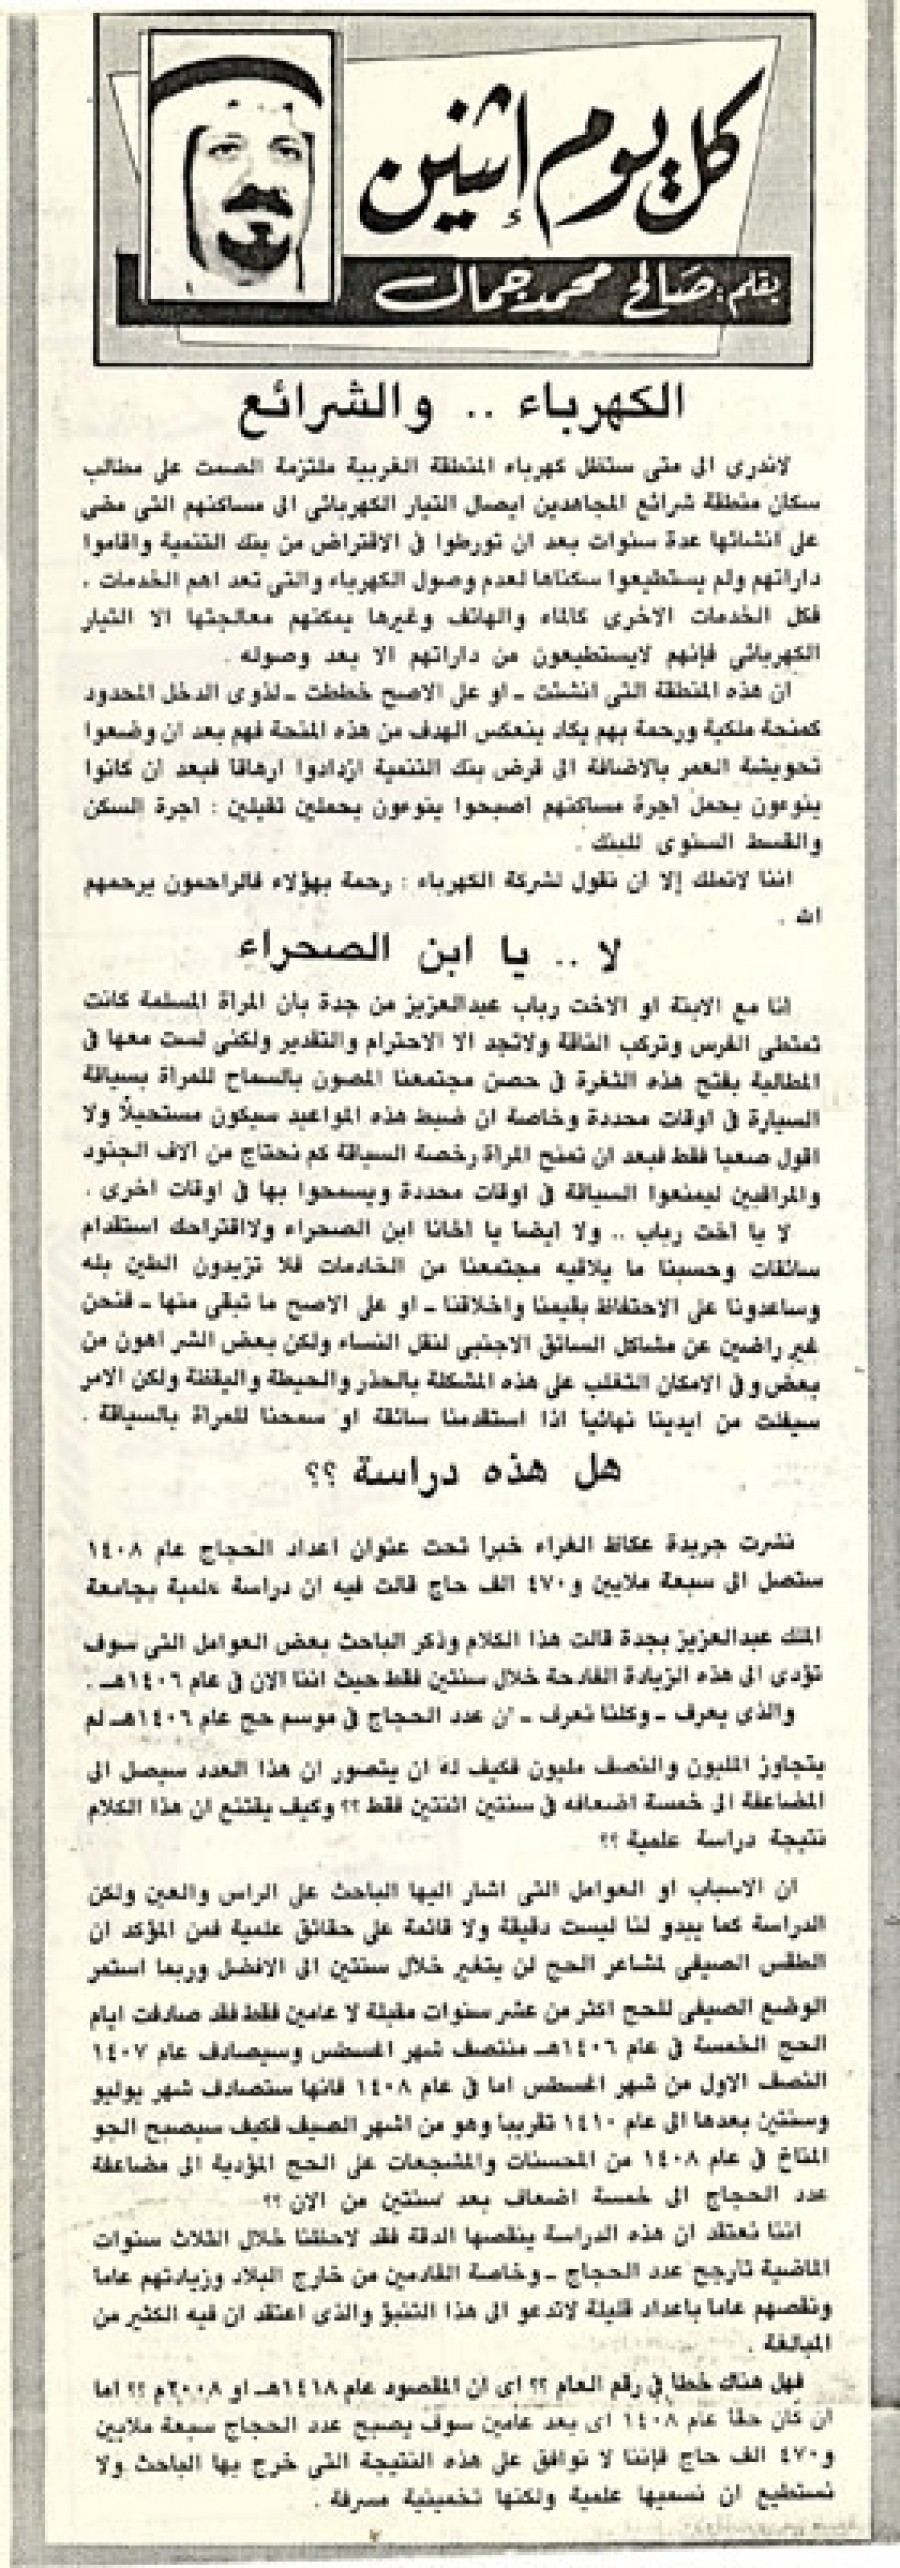 كل يوم إثنين
بقلم: صالح محمد جمال
الكهرباء .. والشرائع
لاندرى الى متى ستظل كهرباء المنطقة الغربية ملتزمة الصمت على مطالب
سكان منطقة شرائع المجاهدين ايصال التيار الكهربائى الى مساكنهم التى مضى
على انشائها عدة سنوات بعد ان تورطوا فى الاقتراض من بنك التنمية واقاموا
داراتهم ولم يستطيعوا سكناها لعدم وصول الكهرباء والتى تعد اهم الخدمات .
فكل الخدمات الاخرى كالماء والهاتف وغيرها يمكنهم معالجتها الا التيار
الكهربائى فإنهم لايستطيعون من داراتهم الا بعد وصوله .
ان هذه المنطقة التى انشئت ــ او على الاصح خططت ــ لذوى الدخل المحدود
كمنحة ملكية ورحمة بهم يكاد ينعكس الهدف من هذه المنحة فهم بعد ان وضعوا
تحويشة العمر بالاضافة الى قرض بنك التنمية ازدادوا ارهاقا فبعد ان كانوا
ينوءون بحمل أجرة مساكنهم أصبحوا ينوءون بحملين ثقيلين : أجرة السكن
والقسط السنوى للبنك .
اننا لانملك إلا ان نقول لشركة الكهرباء : رحمة بهؤلاء فالراحمون يرحمهم
الله .
لا .. يا ابن الصحراء
انا مع الابنة او الاخت رباب عبدالعزيز من جدة بأن المرأة المسلمة كانت
تمتطى الفرس وتركب الناقة ولاتجد الا الاحترام والتقدير ولكنى لست معها فى
المطالبة بفتح هذه الثغرة فى حصن مجتمعنا المصون بالسماح للمرأة بسياقة
السيارة فى اوقات محددة وخاصة ان ضبط هذه المواعيد سيكون مستحيلاً ولا
اقول صعبا فقط فبعد ان تمنح المرأة رخصة السياقة كم نحتاج من آلاف الجنود
والمراقبين ليمنعوا السياقة فى اوقات محددة ويسمحوا بها فى اوقات اخرى .
لا يا اخت رباب .. ولا ايضا يا اخانا ابن الصحراء ولااقتراحك استقدام
سائقات وحسبنا ما يلاقيه مجتمعنا من الخادمات فلا تزيدون الطين بله
وساعدونا على الاحتفاظ بقيمنا واخلاقنا ــ او على الاصح ما تبقى منها ــ فنحن
غير راضين عن مشاكل السائق الاجنبى لنقل النساء ولكن بعض الشر اهون من
بعض وفى الامكان التغلب على هذه المشكلة بالحذر والحيطة واليقظة ولكن الامر
سيفلت من ايدينا نهائيا اذا استقدمنا سائقة او سمحنا للمرأة بالسياقة .
هل هذه دراسة ؟؟
نشرت جريدة عكاظ الغراء خبرا تحت عنوان اعداد الحجاج عام ١٤٠٨
ستصل الى سبعة ملايين و٤٧٠ الف حاج قالت فيه ان دراسة علمية بجامعة
الملك عبدالعزيز بجدة قالت هذا الكلام وذكر الباحث بعض العوامل التى سوف
تؤدى الى هذه الزيادة الفادحة خلال سنتين فقط حيث اننا الان فى عام ١٤٠٦هـ .
والذى يعرف ــ وكلنا نعرف ــ ان عدد الحجاج فى موسم حج عام ١٤٠٦هـ لم
يتجاوز المليون والنصف مليون فكيف له ان يتصور ان هذا العدد سيصل الى
المضاعفة الى خمسة اضعافه فى سنتين اثنتين فقط ؟؟ وكيف يقتنع ان هذا الكلام
نتيجة دراسة علمية ؟؟
ان الاسباب او العوامل التى اشار اليها الباحث على الراس والعين ولكن
الدراسة كما يبدو لنا ليست دقيقة ولا قائمة على حقائق علمية فمن المؤكد ان
الطقس الصيفى لمشاعر الحج لن يتغير خلال سنتين الى الافضل وربما استمر
الوضع الصيفى للحج اكثر من عشر سنوات مقبلة لا عامين فقط فقد صادفت ايام
الحج الخمسة فى عام ١٤٠٦هـ منتصف شهر اغسطس وسيصادف عام ١٤٠٧
النصف الاول من شهر اغسطس اما فى عام ١٤٠٨ فانها ستصادف شهر يوليو
وسنتين بعدها الى عام ١٤١٠ تقريبا وهو من اشهر الصيف فكيف سيصبح الجو
المناخ فى عام ١٤٠٨ من المحسنات والمشجعات على الحج المؤدية الى مضاعفة
عدد الحجاج الى خمسة اضعاف بعد سنتين من الان ؟؟
اننا نعتقد ان هذه الدراسة ينقصها الدقة فقد لاحظنا خلال الثلاث سنوات
الماضية تأرجح عدد الحجاج ــ وخاصة القادمين من خارج البلاد وزيادتهم عاما
ونقصهم عاما باعداد قليلة لاتدعو الى هذا التنبؤ والذى اعتقد ان فيه الكثير من
المبالغة .
فهل هناك خطأ فى رقم العام ؟؟ اى ان المقصود عام ١٤١٨هـ او ٢٠٠٨م ؟؟ اما
ان كان حقاً عام ١٤٠٨ اى بعد عامين سوف يصبح عدد الحجاج سبعة ملايين
و٤٧٠ الف حاج فإننا لا نوافق على هذه النتيجة التى خرج بها الباحث ولا
نستطيع ان نسميها علمية ولكنها تخمينية مسرفة .